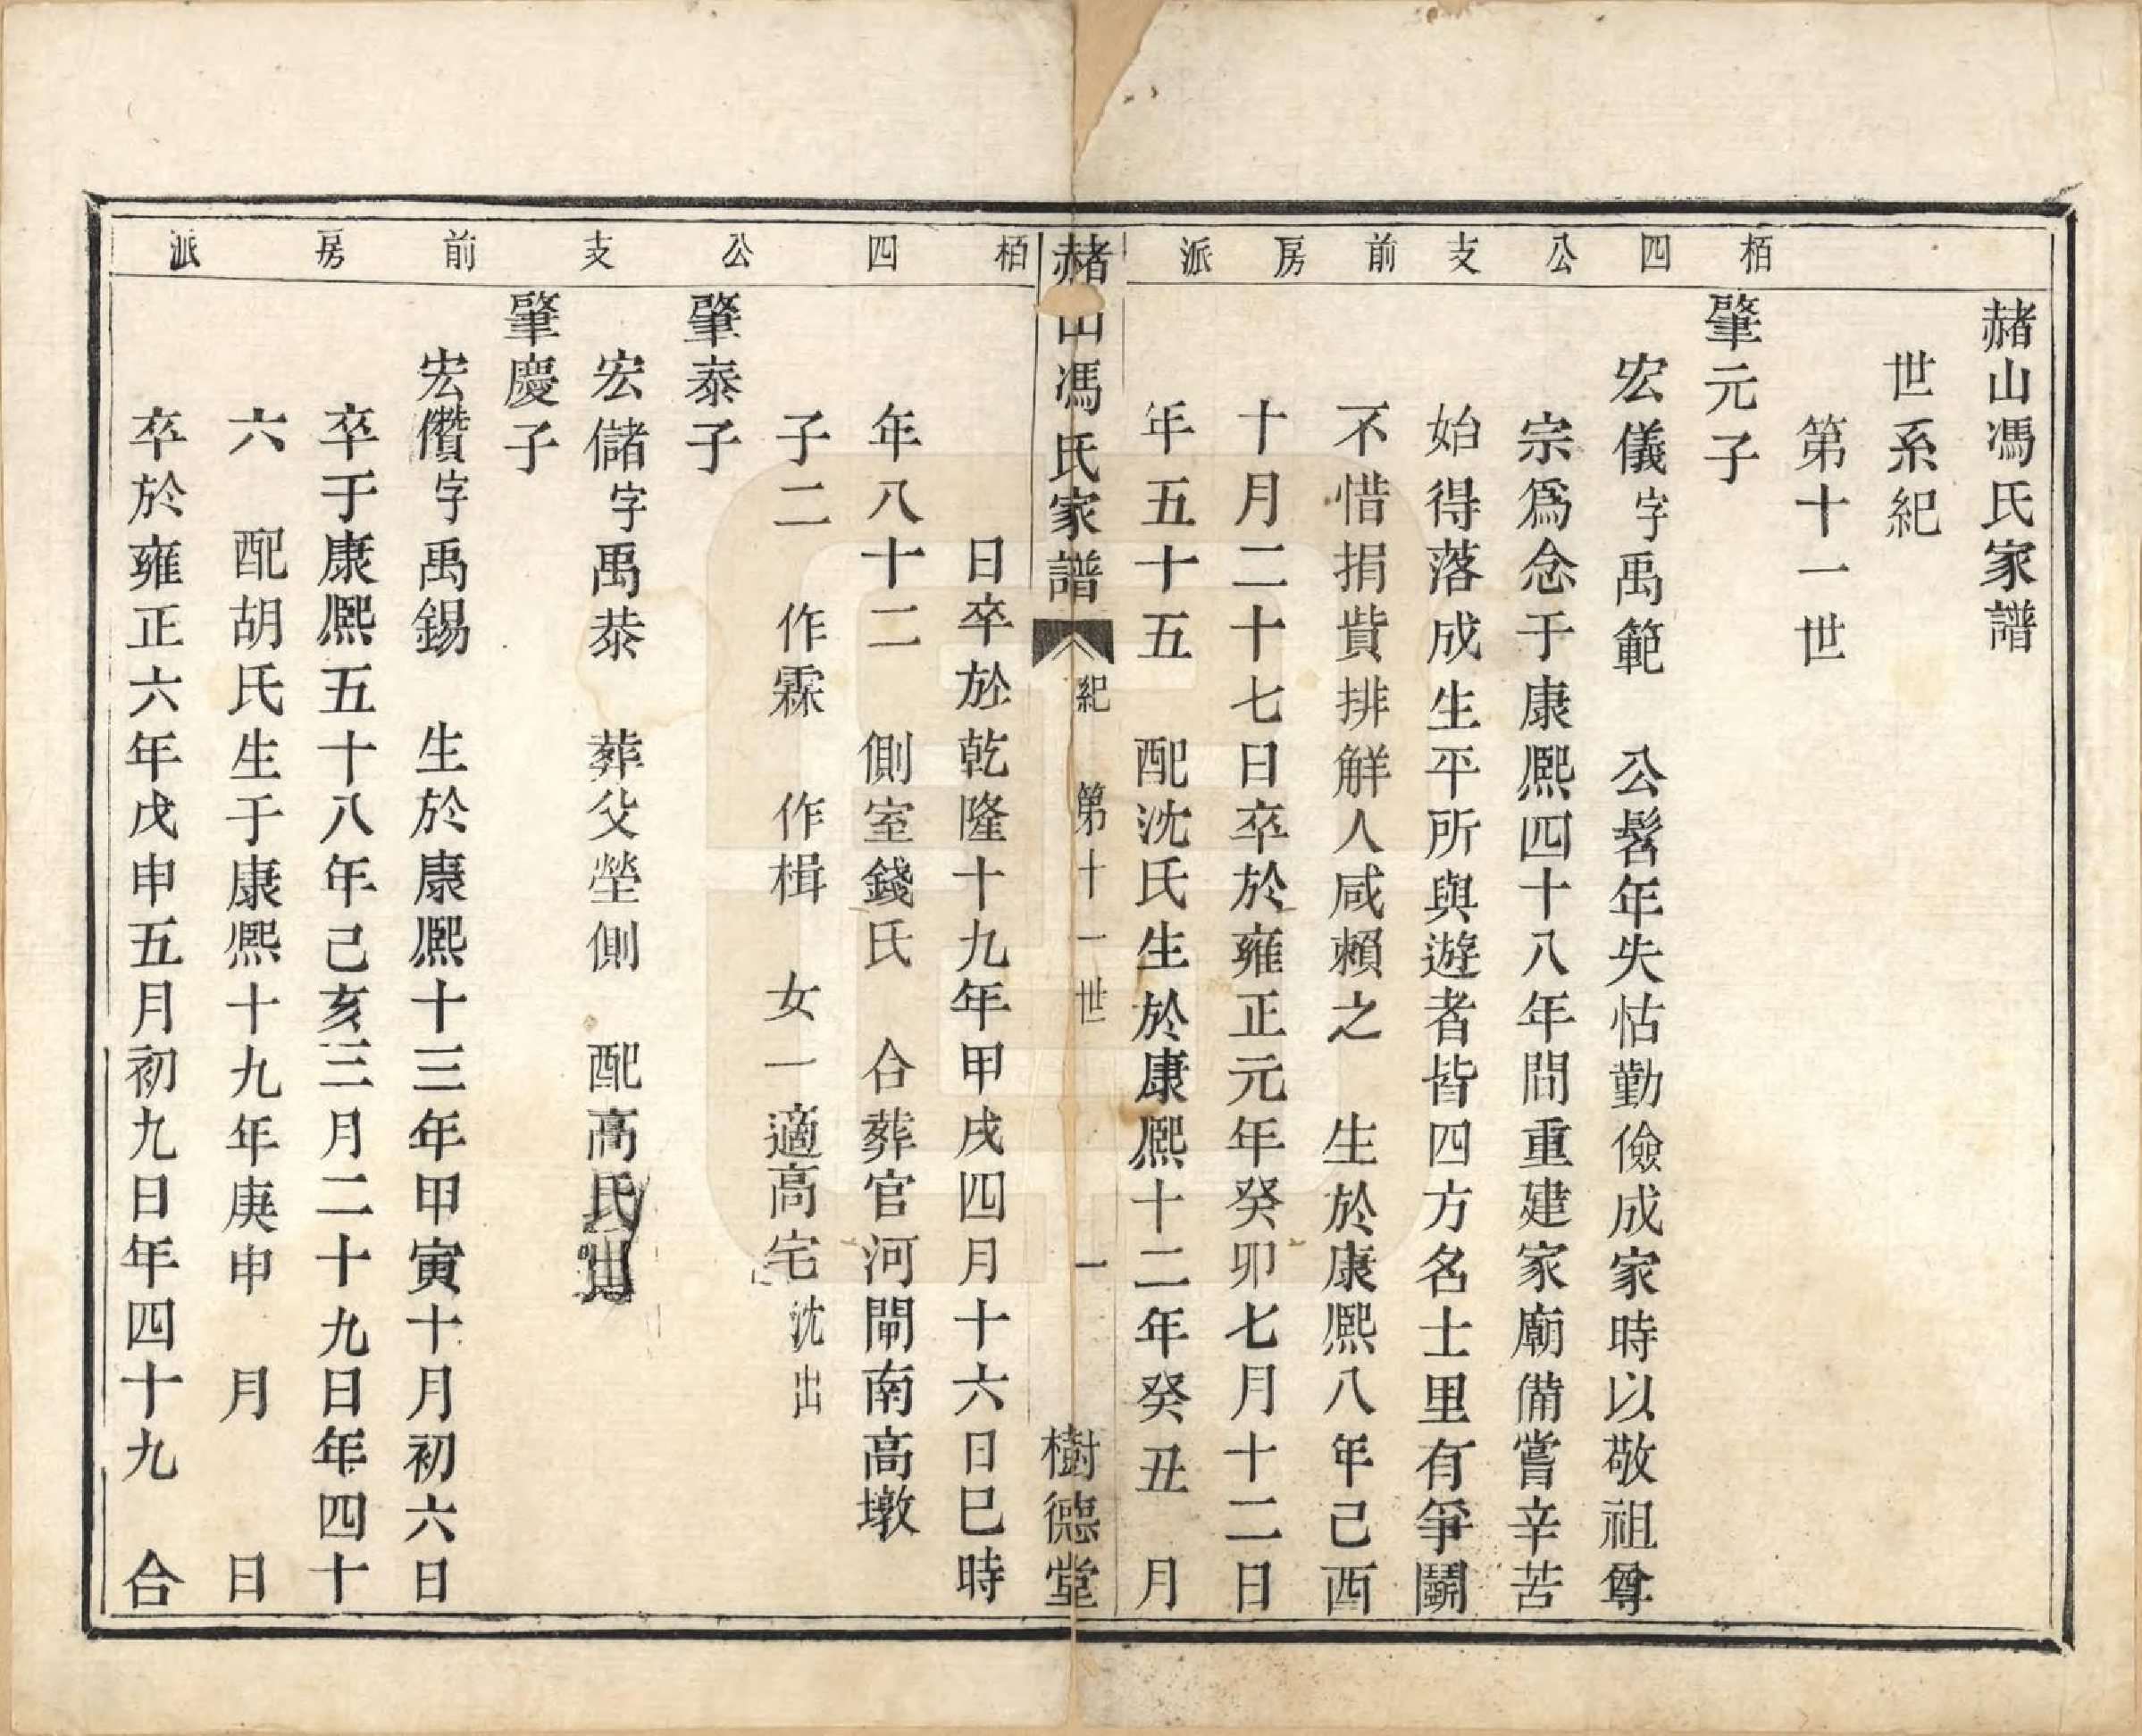 栢四公支前房派
赭山馮氏家譜
世系紀
第十一世
肇元子
宏儀字禹範 公髫年失怙勤儉成家時以敬祖尊
宗爲念于康熙四十八年間重建家廟備嘗辛苦
始得落成生平所與遊者皆四方名士里有爭鬪
不惜捐貲排解人咸賴之 生於康熙八年己酉
十月二十七日卒於雍正元年癸卯七月十二日
年五十五 配沈氏生於康熙十二年癸丑 月
赭山馮氏家譜 紀 第十一世 一 樹德堂
栢四公支前房派
日卒於乾隆十九年甲戌四月十六日巳時
年八十二 側室錢氏 合葬官河閘南高墩
子二 作霖 作楫 女一適高宅沈出
肇泰子
宏儲字禹恭 葬父塋側 配高氏
肇慶子
宏儹字禹錫 生於康熙十三年甲寅十月初六日
卒于康熙五十八年己亥三月二十九日年四十
六 配胡氏生于康熙十九年庚申 月 日
卒於雍正六年戊申五月初九日年四十九 合